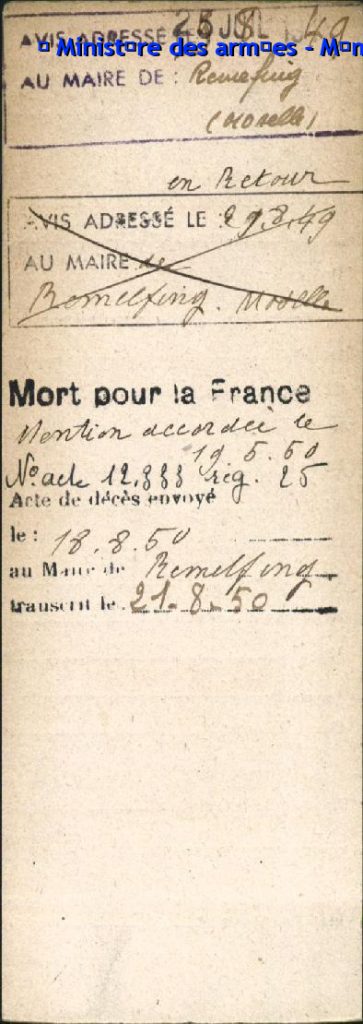 ¤ Minist¤re des arm¤es - M¤n
AVIS ADRESSÉ LE 25 JUIL 1949
AU MAIRE DE : Remelfing
(Moselle)
en Retour
AVIS ADRESSÉ LE : 29.8.49
AU MAIRE de
Remelfing. Moselle
Mort pour la France
Mention accordée le
19.5.50
N° acte 12.888 reg. 25
Acte de décès envoyé
le : 18.8.50
au Maire de Remelfing
transcrit le. 21-8-50